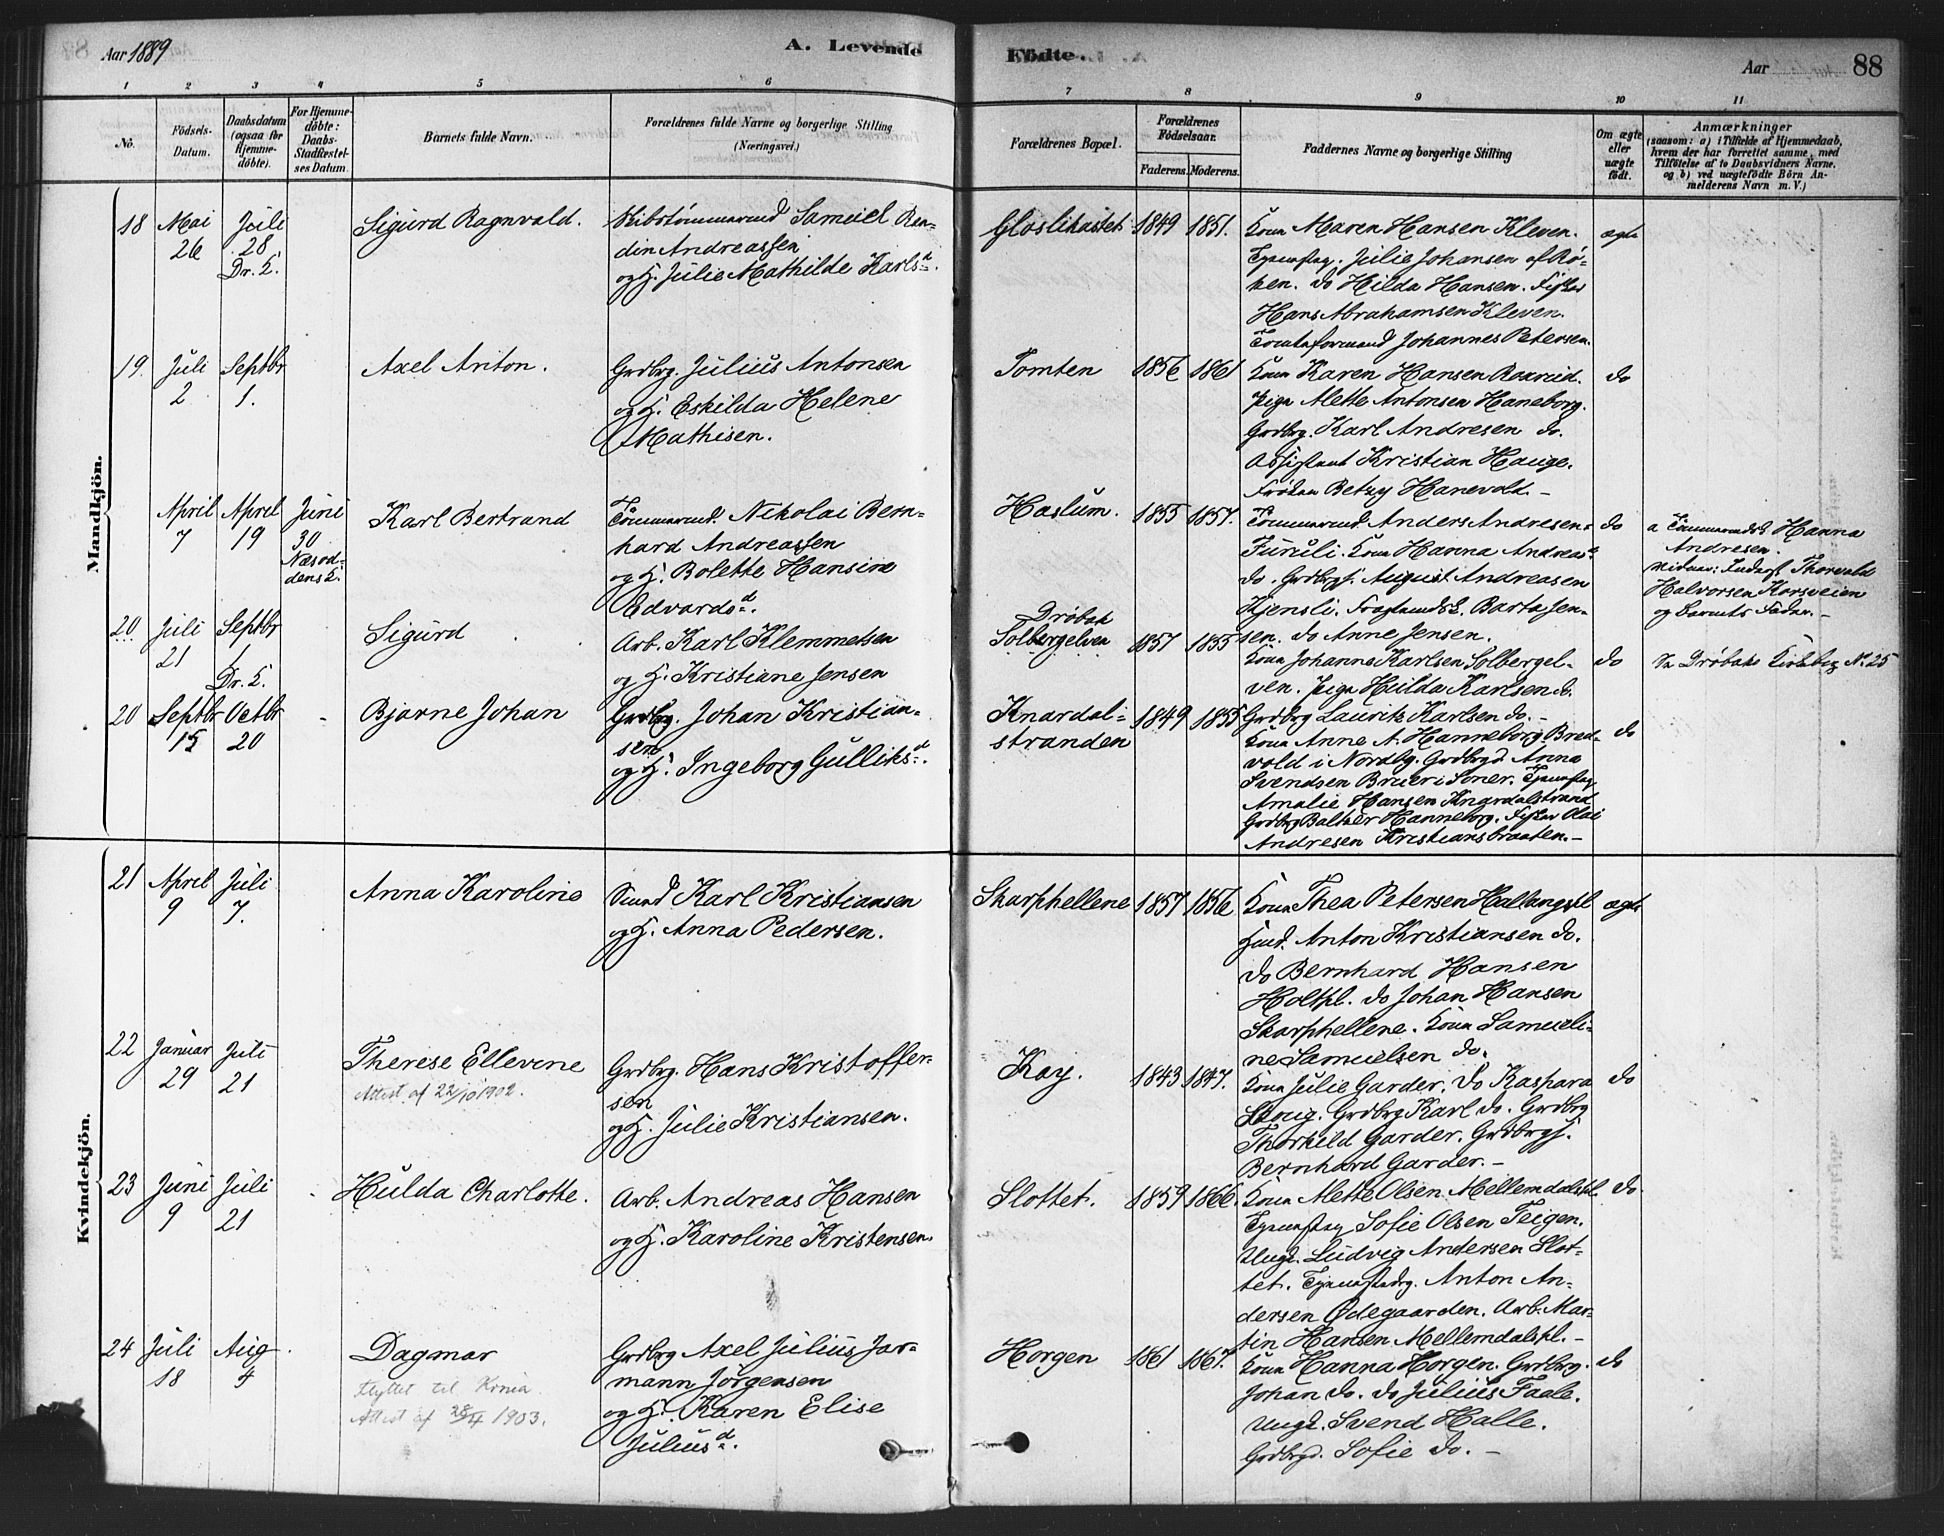 Aar 1889
A. Levende
Födte.
Aar
88
1 2 3 4 5 6 7 8 9 10 11
No.
Födsels-
Datum.
Daabsdatum
(ogsaa for
Hjemme-
döbte).
For Hjemme-
döbte:
Daabs-
Stadfæstel-
ses Datum.
Barnets fulde Navn.
Forældrenes fulde Navne og borgerlige Stilling
(Næringsvei.)
Forældrenes Bopæl.
Forældrenes
Födselsaar.
Faderens. Moderens.
Faddernes Navne og borgerlige Stilling
Om ægte
eller
uægte
födt.
Anmærkninger
(saasom: a) i Tilfælde af Hjemmedaab,
hvem der har forrettet samme, med
Tilföielse af to Daabsvidners Navne,
og b) ved uægtefödte Börn An-
melderens Navn m. V.)
Mandkjön.
18
Mai
26
Juli
28
Dr. K.
Sigurd Ragnvald.
Skibstömmermd Samuel Ran-
din Andreassen
og H. Julie Mathilde Karlsd.
Glaslikastet
1849
1851.
Kone Maren Hansen Kleven.
Tjenestpg. Julie Johansen af Rö-
ken. do Hilda Hansen. Fisker
Hans Abrahamsen Kleven.
Johannes Petersen.
ægte
19.
Juli
2
Septbr
1.
Axel Anton.
Grdbrg. Julius Antonsen
og H. Eskilda Helene
Mathisen.
Tomten
1856
1861
Kone Karen Hansen Raarud.
Pige Mette Antonsen Haneborg.
Grdbrg. Karl Andresen do.
Assistent Kristian Hauge.
Fröken Betzy Hanevold.-
do
April
7
April
19
Juni
30
Næsod-
dens K.
Karl Bertrand
Tömmermd. Nikolai Bern-
hard Andreassen
og H. Bolette Hansine
Edvardsd.
Haslum.
1855
1857.
Tömmermd Anders Andresen
Furuli. Kone Hanna Andreas
do. Grdbrgs. August Andreasen
Hjensli.
sen. do Anne Jensen.
do
a Tömmermds K. Hanna
Andresen.
Thorvald
Halvorsen Korsveien
og Barnets Fader.-
20
Juli
21
Septbr
1
Dr. K.
Sigurd
Arb. Karl Klemmetsen
og H. Kristiane Jensen
Dröbak
Solbergelven
1857
1855
Kone Johanne Karlsen Solbergel-
ven. Pige Hulda Karlsen do.
Grdbrg Lauritz Karlsen do.-
do
Se Dröbaks Kirkebog No 25
20
Septbr
15
Octbr
20
Bjarne Johan
Grdbrg. Johan Kristian-
sen
og H. Ingeborg Gulliksd.
Knardal-
stranden
1849
1855
Kone Anne A. Hanneborg Bred-
vold i Nordby. Grdbrgd Anna
Svendsen Bruer i Soner. Tjenestpg
Amalie Hansen Knardalstrand
Grdbrg Baltzer Hanneborg. Fisker Olai
Andresen Kristiansbraaten.-
do
Kvindekjön.
21
April
9
Juli
7.
Anna Karoline
Smed Karl Kristiansen
og H. Anna Pedersen.
Skarphellene
1857
1856
Kone Thea Petersen Hallangspl
Husmd. Anton Kristiansen do.
do Bernhard Hansen
Holtpl. do Johan Hansen
Skarphellene. Kone Samueli-
ne Samuelsen do.
ægte
22
Januar
29
Juli
21
Therese Ellevine
Attest af 22/10 1902.
Grdbrg. Hans Kristoffer-
sen
og H. Julie Kristiansen.
Kay.
1843
1847.
Kone Julie Garder. do Kaspara
Skoug. Grdbrg Karl do. Grdbrg
Thorkild Garder. Grdbrgs.
Bernhard Garder.-
do
23
Juni
9
Juli
21
Hulda Charlotte.
Arb. Andreas Hansen
og H. Karoline Kristensen.
Slottet.
1859
1866.
Kone Mette Olsen Mellemdalspl.
Tjenestpg Sofie Olsen Teigen.
Ungk. Ludvig Andersen Slot-
tet. Anton An-
dersen Ödegaarden. Arb. Mar-
tin Hansen Mellemdalspl.-
do
24
Juli
18
Aug.
4
Dagmar
flyttet til Krnia
Attest af 28/IV 1903.
Grdbrg Axel Julius Jor-
mann Jörgensen
og H. Karen Elise
Juliusd.
Horgen
1861
1867.
Kone Hanna Horgen. Grdbrg.
Johan do. do Julius Faale.
Ungk. Svend Halle.
Grdbrgd. Sofie do.-
do